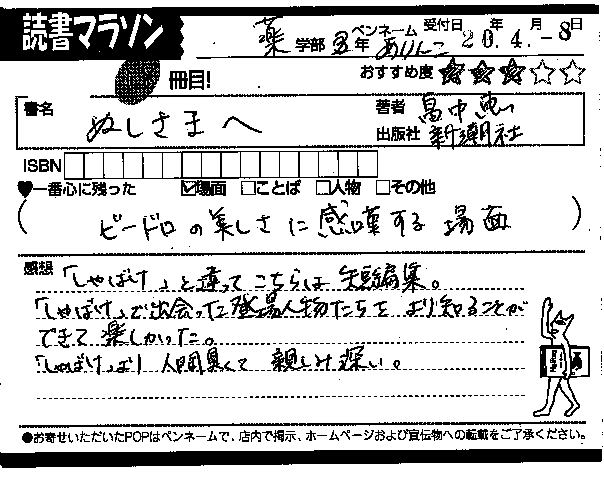 読書マラソン
薬 学部 3年 ペンネーム ありんこ 受付日 20年 4月 -8日
冊目!
おすすめ度 ★★★☆☆
書名 ぬしさまへ
著者 畠中恵
出版社 新潮社
ISBN
♥一番心に残った ☑場面 □ことば □人物 □その他
(ビードロの美しさに感嘆する場面)
感想 「しゃばけ」と違ってこちらは短編集。
「しゃばけ」で出会った登場人物たちをより知ることが
できて楽しかった。
「しゃばけ」より人間臭くて親しみ深い。
●お寄せいただいたPOPはペンネームで、店内で掲示、ホームページおよび宣伝物への転載をご了承ください。